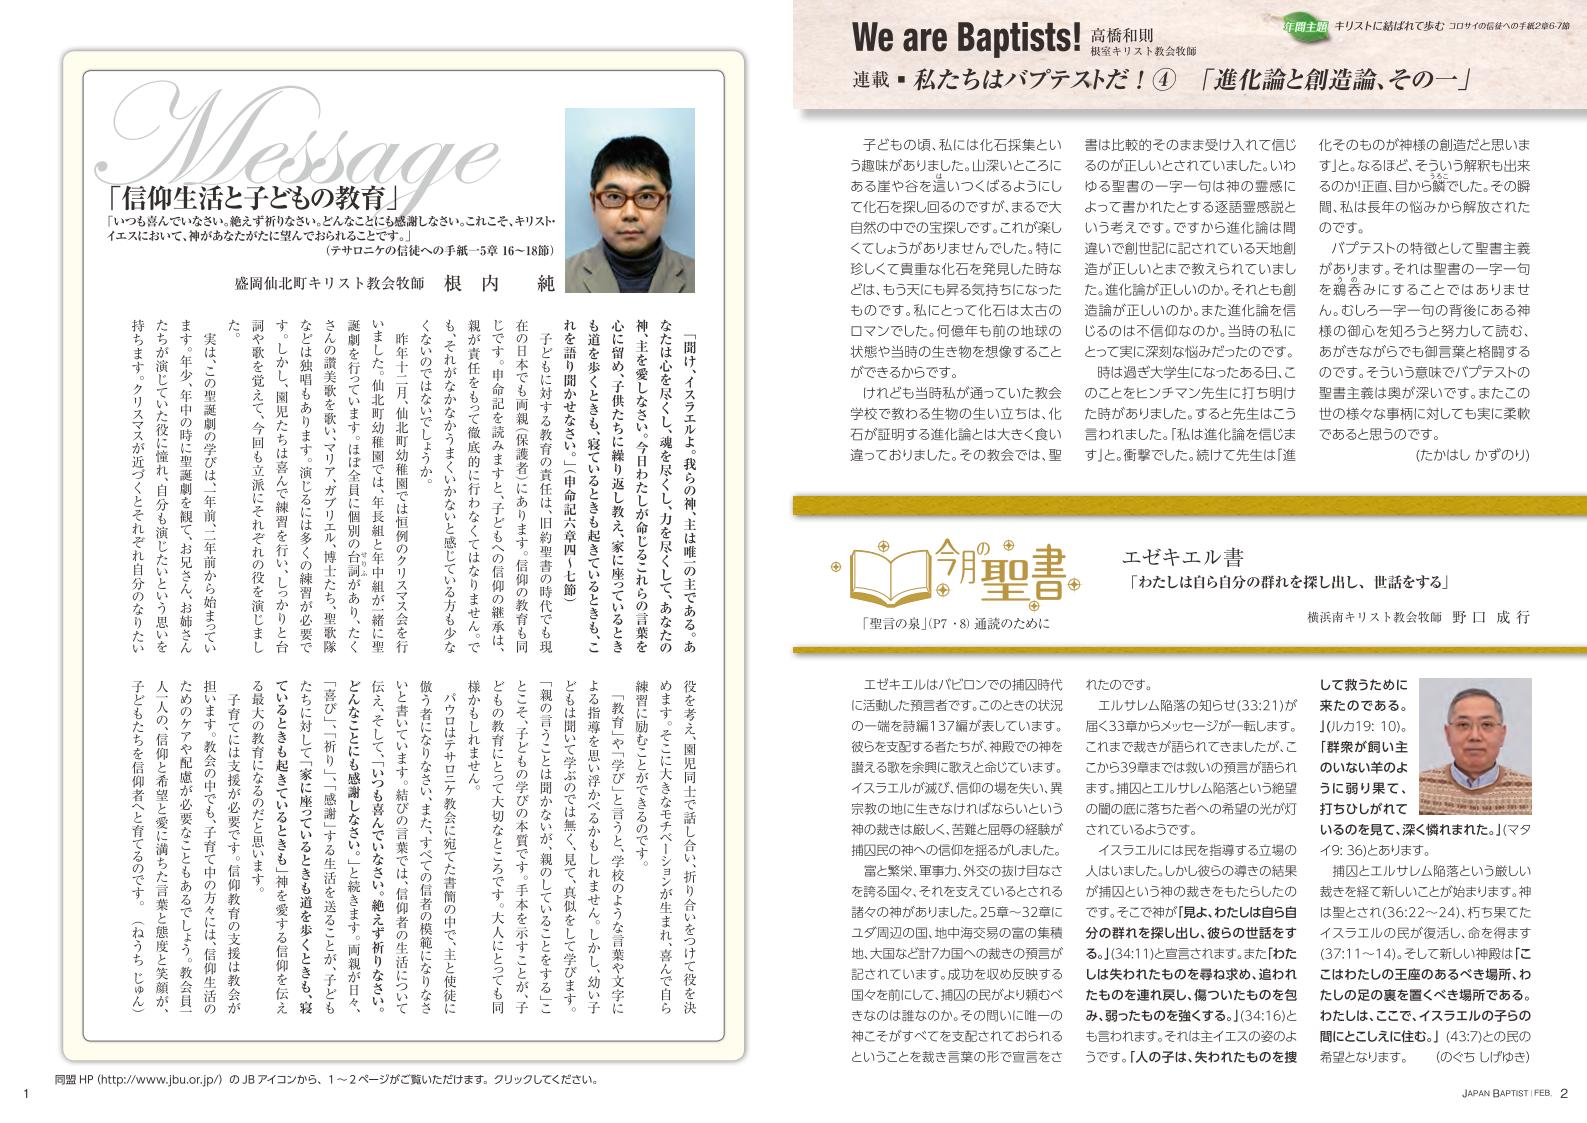 Message
「信仰生活と子どもの教育」
「いつも喜んでいなさい。絶えず祈りなさい。どんなことにも感謝しなさい。これこそ、キリスト・
イエスにおいて、神があなたがたに望んでおられることです。」
（テサロニケの信徒への手紙一5章 16～18節）
盛岡仙北町キリスト教会牧師　根　内　　純
「聞け、イスラエルよ。我らの神、主は唯一の主である。あ
なたは心を尽くし、魂を尽くし、力を尽くして、あなたの
神、主を愛しなさい。今日わたしが命じるこれらの言葉を
心に留め、子供たちに繰り返し教え、家に座っているとき
も道を歩くときも、寝ているときも起きているときも、こ
れを語り聞かせなさい。」（申命記六章四～七節）
子どもに対する教育の責任は、旧約聖書の時代でも現
在の日本でも両親（保護者）にあります。信仰の教育も同
じです。申命記を読みますと、子どもへの信仰の継承は、
親が責任をもって徹底的に行わなくてはなりません。で
も、それがなかなかうまくいかないと感じている方も少な
くないのではないでしょうか。
昨年十二月、仙北町幼稚園では恒例のクリスマス会を行
いました。仙北町幼稚園では、年長組と年中組が一緒に聖
誕劇を行っています。ほぼ全員に個別の台詞（せりふ）があり、たく
さんの讃美歌を歌い、マリア、ガブリエル、博士たち、聖歌隊
などは独唱もあります。演じるには多くの練習が必要で
す。しかし、園児たちは喜んで練習を行い、しっかりと台
詞や歌を覚えて、今回も立派にそれぞれの役を演じまし
た。
実は、この聖誕劇の学びは、一年前、二年前から始まってい
ます。年少、年中の時に聖誕劇を観て、お兄さん、お姉さん
たちが演じていた役に憧れ、自分も演じたいという思いを
持ちます。クリスマスが近づくとそれぞれ自分のなりたい
役を考え、園児同士で話し合い、折り合いをつけて役を決
めます。そこに大きなモチベーションが生まれ、喜んで自ら
練習に励むことができるのです。
「教育」や「学び」と言うと、学校のような言葉や文字に
よる指導を思い浮かべるかもしれません。しかし、幼い子
どもは聞いて学ぶのでは無く、見て、真似をして学びます。
「親の言うことは聞かないが、親のしていることをする」こ
とこそ、子どもの学びの本質です。手本を示すことが、子
どもの教育にとって大切なところです。大人にとっても同
様かもしれません。
パウロはテサロニケ教会に宛てた書簡の中で、主と使徒に
倣う者になりなさい、また、すべての信者の模範になりなさ
いと書いています。結びの言葉では、信仰者の生活について
伝え、そして、「いつも喜んでいなさい。絶えず祈りなさい。
どんなことにも感謝しなさい。」と続きます。両親が日々、
「喜び」、「祈り」、「感謝」する生活を送ることが、子ども
たちに対して「家に座っているときも道を歩くときも、寝
ているときも起きているときも」神を愛する信仰を伝え
る最大の教育になるのだと思います。
子育てには支援が必要です。信仰教育の支援は教会が
担います。教会の中でも、子育て中の方々には、信仰生活の
ためのケアや配慮が必要なこともあるでしょう。教会員一
人一人の、信仰と希望と愛に満ちた言葉と態度と笑顔が、
子どもたちを信仰者へと育てるのです。　（ねうち じゅん）
同盟 HP（http://www.jbu.or.jp/）の JB アイコンから、1～2ページがご覧いただけます。クリックしてください。
1
We are Baptists!
高橋和則
根室キリスト教会牧師
年間主題 キリストに結ばれて歩む コロサイの信徒への手紙2章6-7節
連載 ▪ 私たちはバプテストだ！④　「進化論と創造論、その一」
子どもの頃、私には化石採集とい
う趣味がありました。山深いところに
ある崖や谷を這（は）いつくばるようにし
て化石を探し回るのですが、まるで大
自然の中での宝探しです。これが楽し
くてしょうがありませんでした。特に
珍しくて貴重な化石を発見した時な
どは、もう天にも昇る気持ちになった
ものです。私にとって化石は太古の
ロマンでした。何億年も前の地球の
状態や当時の生き物を想像すること
ができるからです。
けれども当時私が通っていた教会
学校で教わる生物の生い立ちは、化
石が証明する進化論とは大きく食い
違っておりました。その教会では、聖
書は比較的そのまま受け入れて信じ
るのが正しいとされていました。いわ
ゆる聖書の一字一句は神の霊感に
よって書かれたとする逐語霊感説と
いう考えです。ですから進化論は間
違いで創世記に記されている天地創
造が正しいとまで教えられていまし
た。進化論が正しいのか。それとも創
造論が正しいのか。また進化論を信
じるのは不信仰なのか。当時の私に
とって実に深刻な悩みだったのです。
時は過ぎ大学生になったある日、こ
のことをヒンチマン先生に打ち明け
た時がありました。すると先生はこう
言われました。「私は進化論を信じま
す」と。衝撃でした。続けて先生は「進
化そのものが神様の創造だと思いま
す」と。なるほど、そういう解釈も出来
るのか!正直、目から鱗（うろこ）でした。その瞬
間、私は長年の悩みから解放された
のです。
バプテストの特徴として聖書主義
があります。それは聖書の一字一句
を鵜呑（うの）みにすることではありませ
ん。むしろ一字一句の背後にある神
様の御心を知ろうと努力して読む、
あがきながらでも御言葉と格闘する
のです。そういう意味でバプテストの
聖書主義は奥が深いです。またこの
世の様々な事柄に対しても実に柔軟
であると思うのです。
（たかはし かずのり）
今月の聖書
「聖言の泉」（P7・8）通読のために
エゼキエル書
「わたしは自ら自分の群れを探し出し、世話をする」
横浜南キリスト教会牧師　野 口　成 行
エゼキエルはバビロンでの捕囚時代
に活動した預言者です。このときの状況
の一端を詩編137編が表しています。
彼らを支配する者たちが、神殿での神を
讃える歌を余興に歌えと命じています。
イスラエルが滅び、信仰の場を失い、異
宗教の地に生きなければならないという
神の裁きは厳しく、苦難と屈辱の経験が
捕囚民の神への信仰を揺るがしました。
富と繁栄、軍事力、外交の抜け目なさ
を誇る国々、それを支えているとされる
諸々の神がありました。25章～32章に
ユダ周辺の国、地中海交易の富の集積
地、大国など計7カ国への裁きの預言が
記されています。成功を収め反映する
国々を前にして、捕囚の民がより頼むべ
きなのは誰なのか。その問いに唯一の
神こそがすべてを支配されておられる
ということを裁き言葉の形で宣言をさ
れたのです。
エルサレム陥落の知らせ(33:21)が
届く33章からメッセージが一転します。
これまで裁きが語られてきましたが、こ
こから39章までは救いの預言が語られ
ます。捕囚とエルサレム陥落という絶望
の闇の底に落ちた者への希望の光が灯
されているようです。
イスラエルには民を指導する立場の
人はいました。しかし彼らの導きの結果
が捕囚という神の裁きをもたらしたの
です。そこで神が「見よ、わたしは自ら自
分の群れを探し出し、彼らの世話をす
る。」(34:11)と宣言されます。また「わた
しは失われたものを尋ね求め、追われ
たものを連れ戻し、傷ついたものを包
み、弱ったものを強くする。」(34:16)と
も言われます。それは主イエスの姿のよ
うです。「人の子は、失われたものを捜
して救うために
来たのである。
」(ルカ19: 10)。
「群衆が飼い主
のいない羊のよ
うに弱り果て、
打ちひしがれて
いるのを見て、深く憐れまれた。」(マタ
イ9: 36)とあります。
捕囚とエルサレム陥落という厳しい
裁きを経て新しいことが始まります。神
は聖とされ(36:22～24)、朽ち果てた
イスラエルの民が復活し、命を得ます
(37:11～14)。そして新しい神殿は「こ
こはわたしの王座のあるべき場所、わ
たしの足の裏を置くべき場所である。
わたしは、ここで、イスラエルの子らの
間にとこしえに住む。」(43:7)との民の
希望となります。　（のぐち しげゆき）
JAPAN BAPTIST | FEB. 2